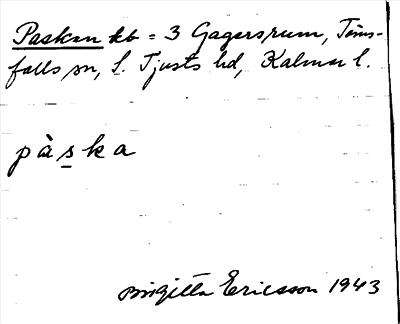 Paskan kb = 3 Gagersrum, Tuns-
falls sn, S. Tjusts hd, Kalmar l.
pàska
Birgitta Ericsson 1943